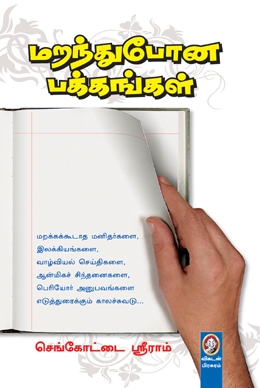 மறந்துபோன
பக்கங்கள்
மறக்கக்கூடாத மனிதர்களை,
இலக்கியங்களை,
வாழ்வியல் செய்திகளை,
ஆன்மிகச் சிந்தனைகளை,
பெரியோர் அனுபவங்களை
எடுத்துரைக்கும் காலச்சுவடு...
செங்கோட்டை ஸ்ரீராம்
விகடன்
பிரசுரம்